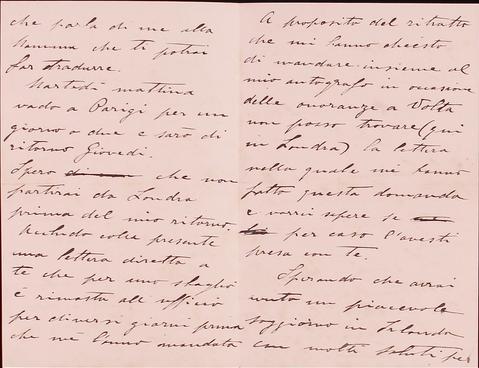 che parla di me alla
Mamma che ti potrai
far tradurre.
Martedì mattina
vado a Parigi per un
giorno o due e sarò di
ritorno Giovedì.
Spero che non
partirai da Londra
prima del mio ritorno.
Accludo colla presente
una lettera diretta a
te che per uno sbaglio
è rimasta all'ufficio
per diversi giorni prima
che me l'anno mandata
A proposito del ritratto
che mi hanno chiesto
di mandare insieme al
mio autografo in occasione
delle onoranze a Volta
non posso trovare (qui
in Londra) la lettera
nella quale mi hanno
fatto questa domanda
e vorrei sapere se
per caso l'avesti
presa con te.
Sperando che avrai
avuto un piacevole
soggiorno in Irlanda
con molti saluti per